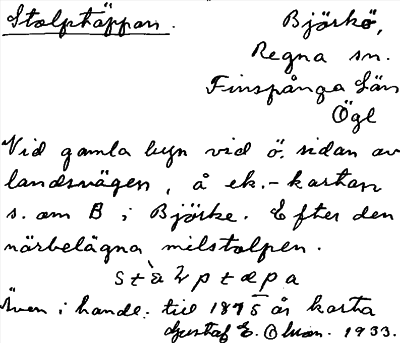 Stolptäppan.
Björkö,
Regna sn.
Finspånga Län
Ögl
Vid gamla byn vid ö. sidan av
landsvägen, å ek.-kartan
s. om B i Björke. Efter den
närbelägna milstolpen.
Även i handl. till 1875 års karta
Gustaf E. Olsson. 1933.